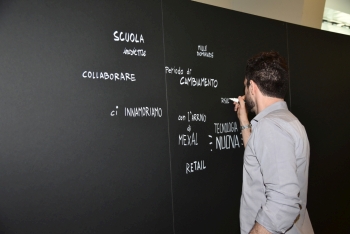 SCUOLA
COLLABORARE
ci INNAMORIAMO
MILLE
DOMANDE
Periodo di
CAMBIAMENTO
con l'ARRIVO
di
MEXAL
RETAIL
TECNOLOGIA
NUOVA